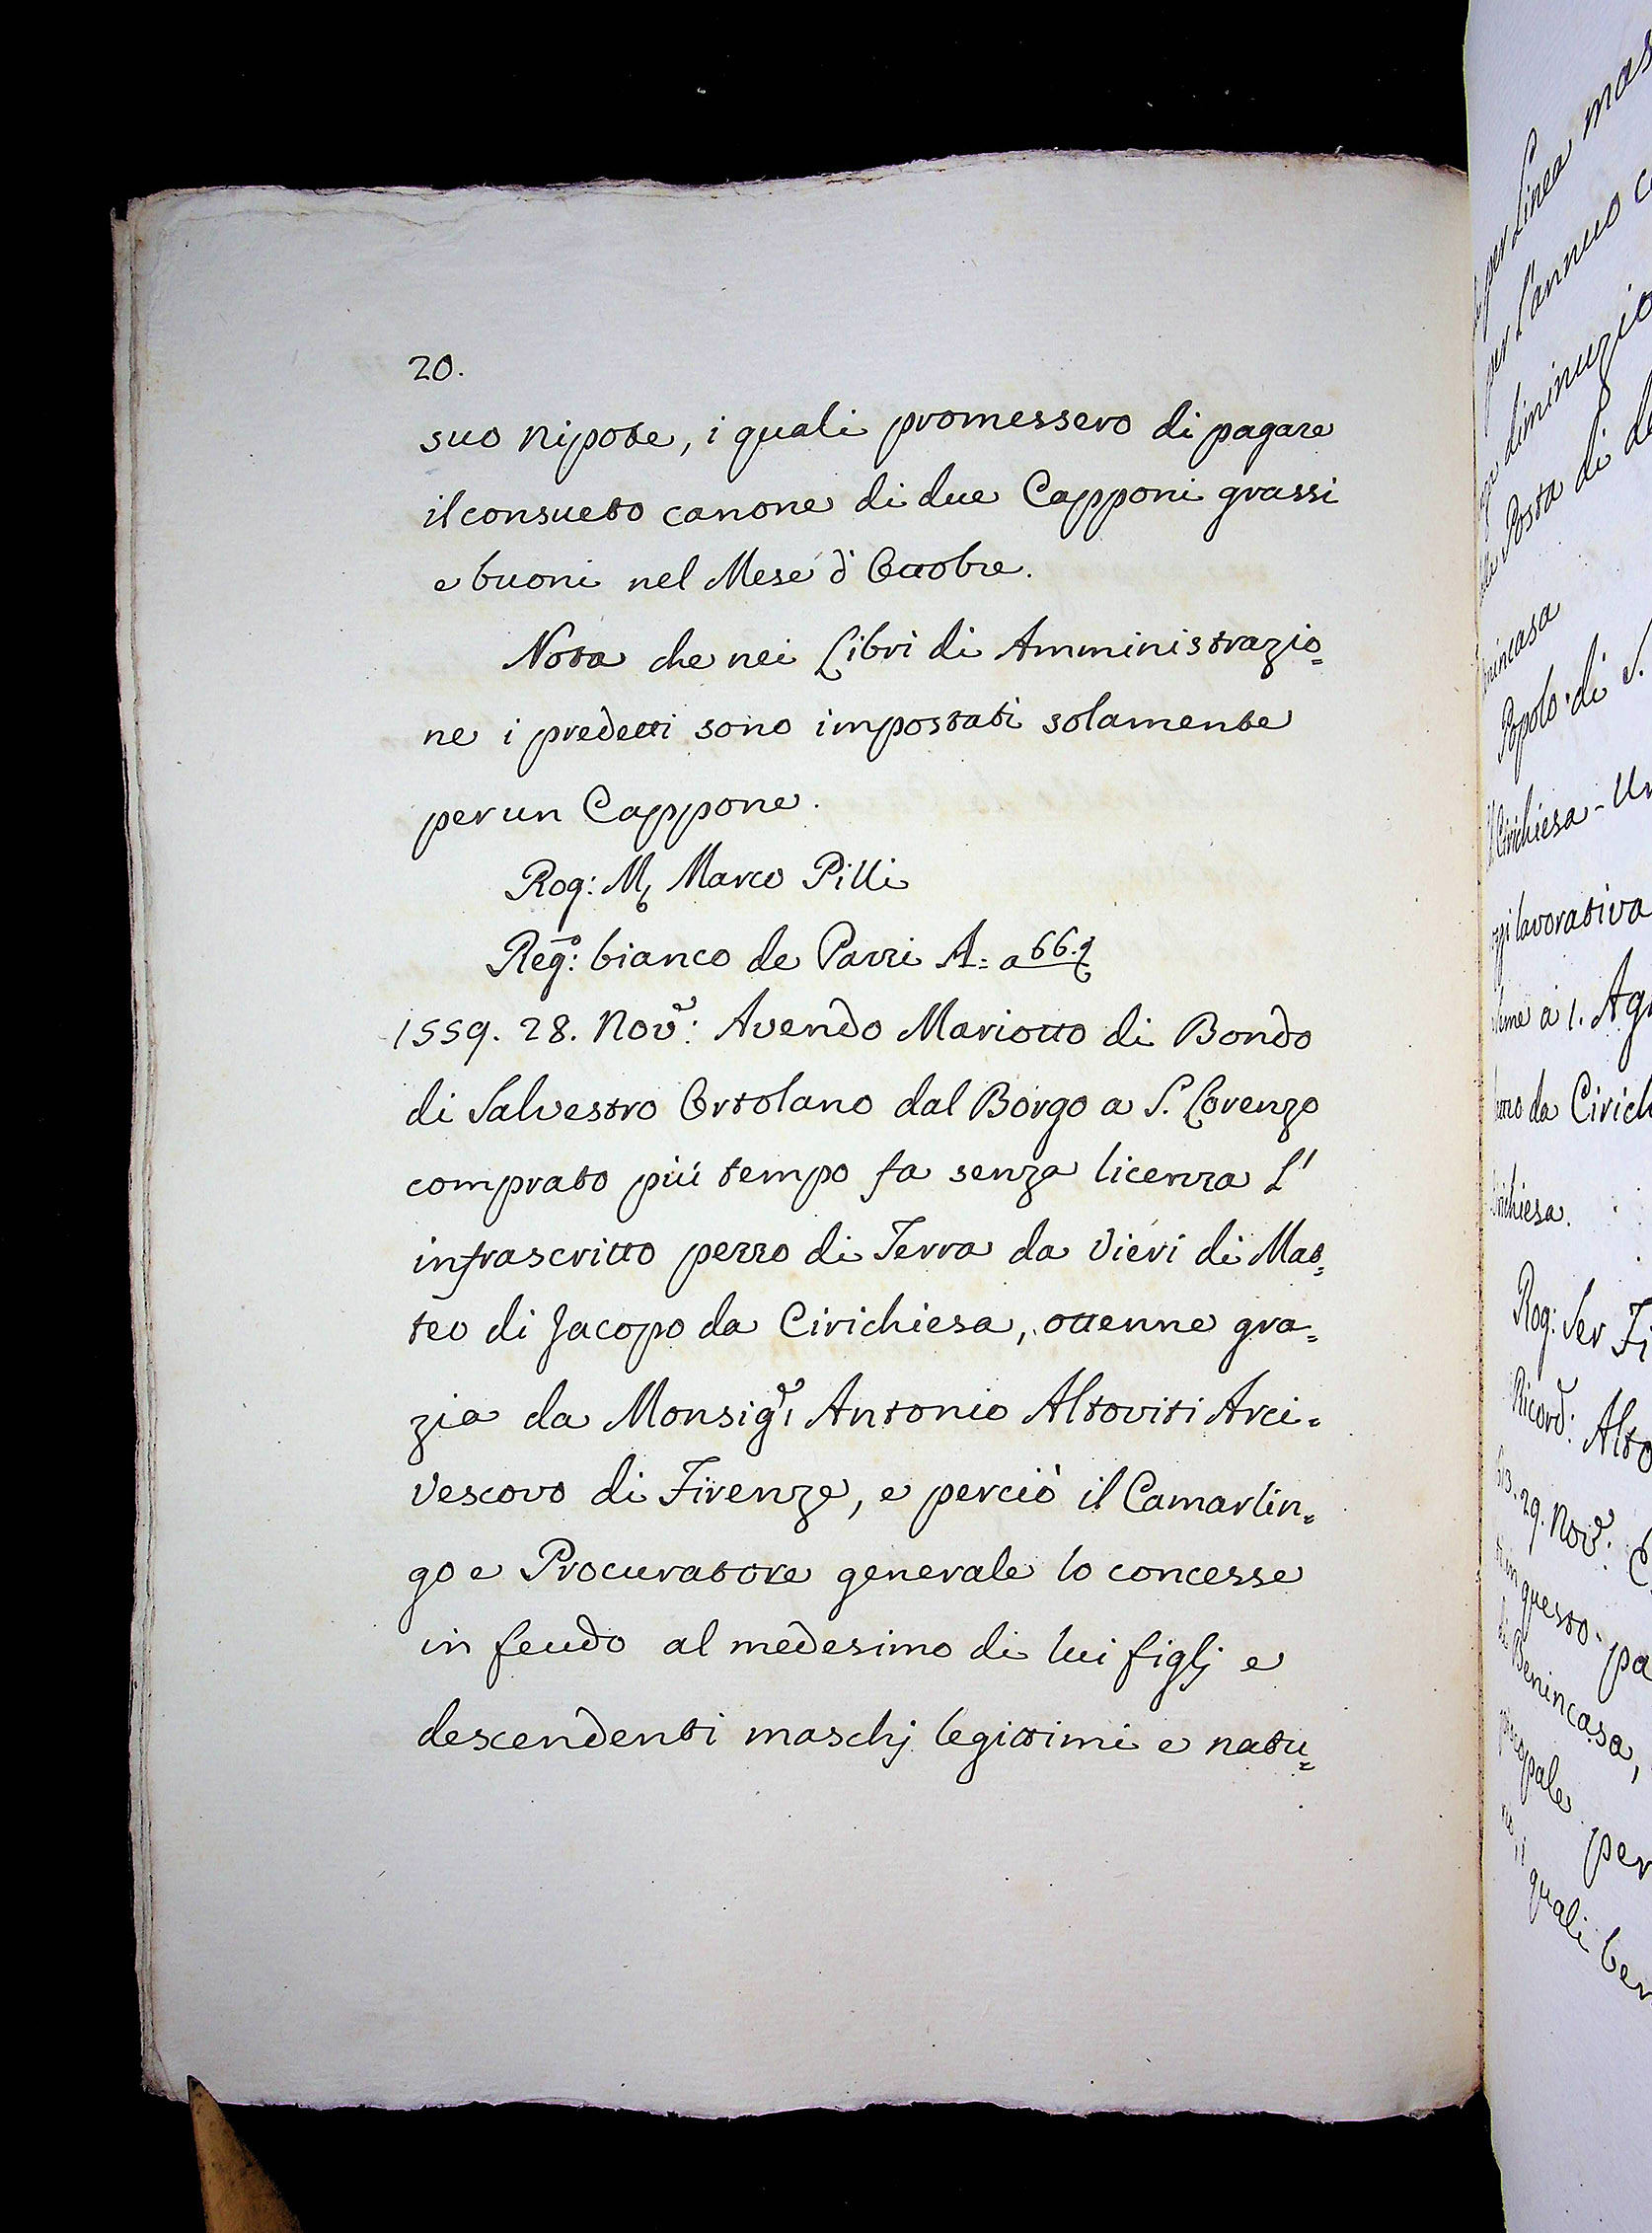 20.
suo nipote, i quali promessero di pagare
il consueto canone di due Capponi grassi
e buoni nel Mese d'Ottobre.
Nota che nei Libri di Amministrazio=
ne i predetti sono impostati solamente
per un Cappone.
Rog: M, Marco Pilli
Reg:º bianco de Pazzi A= a 66.
1559. 28. Nov.e: Avendo Mariotto di Bondo
di Salvestro Ortolano dal Borgo a S. Lorenzo
comprato più tempo fa senza licenza L'
infrascritto pezzo di Terra da Vieri di Mat=
teo di Jacopo da Cirichiesa, ottenne gra=
zia da Monsig.r Antonio Altoviti Arci=
vescovo di Firenze, e perciò il Camarlin=
go e Procuratore generale lo concesse
in feudo al medesimo di lui figlj e
descendenti maschj legittimi e natu=
per Linea mas
per L'annuo c
diminuzio
Posta di
nincasa
Popolo di S.
Cirichiesa - Un
lavorativa
a 1. Ag
da Cirich
Rog: Ser Fi
Ricord: Alto
29. Nov.e:
questo pa
di Benincasa,
pale per
quali ben